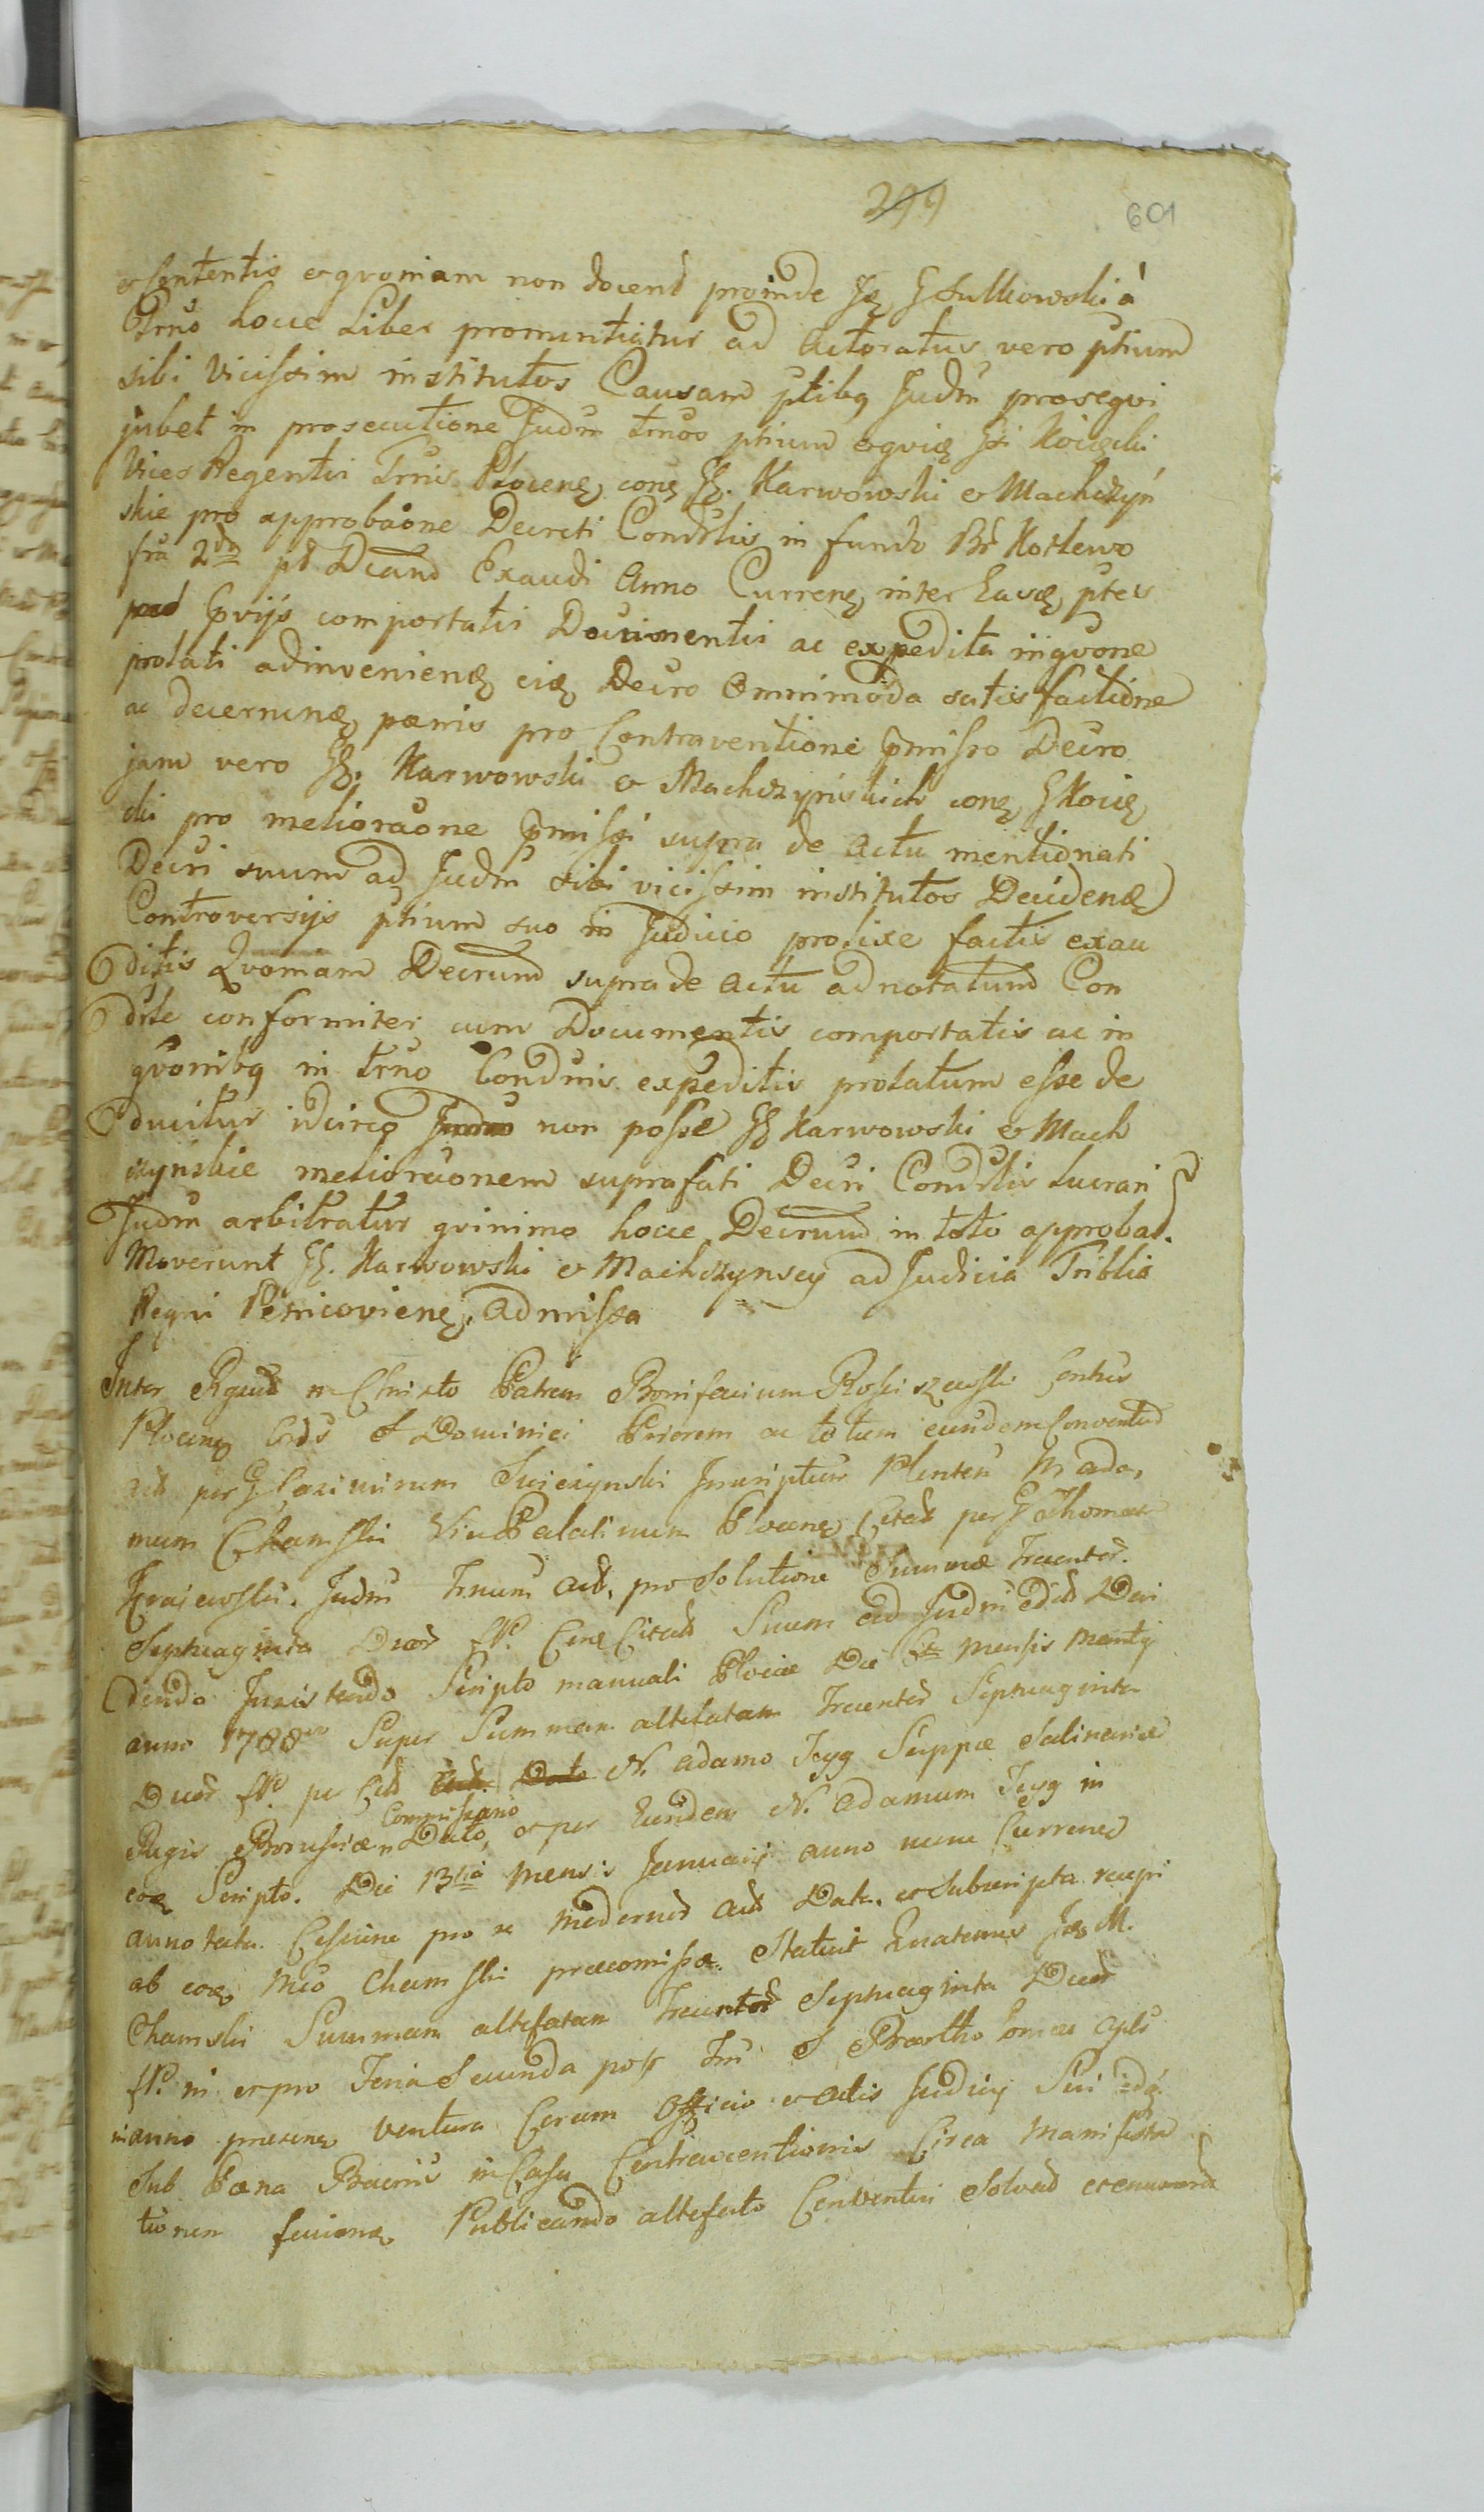 299 601
et Contentis et qvoniam non docent proinde Jsę G Sulkowski à
Trno hocce Liber pronuntiatur ad Actoratus vero ptium
sibi Vicissim institutos Causam ptibq Judm proseqvi
jubet in prosecutione Judm trnoo ptium
Vices Regentis Trnis Plocenę conę GG. Karwowski et Machczyń
skie pro approbaone Decreti Condrlis in fundo Kozlewo
fria 2da pt Dcand Exaudi Anno Currenę inter Easdę ptes
pviis comportatis Documentis ac expedita inqvone
prolati adinvenienę eię Decro Omnimoda satisfactione
ac decernenę pænis pro Contraventione pmisso Decro
jam vero GG. Karwowski et Machczyńskich conę G Kocię
cki pro melioraone pmissi supra de Actu mentionati
Decri suum ad Judm sibi vicissim institutos Decidenę
Controversijs ptium suo in Judicio prolixe factis exau
ditis Qvoniam Decrum supra de Actu adnotatum Con
drle conformiter cum Documentis comportatis ac in
qvonibq in trno Condnis expeditis prolatum esse de
ducitur idcirco non posse GG Karwowski et Mach
czynskie melioraonem suprafati Decri Condrlis Lucrari
Judm arbitratur qvinimo hocce Decrum in toto approbat.
Moverunt GG. Karwowski et Machczynscy ad Judicia Triblia
Regni Petricovienę. Admissa
Inter Rgum in Christo Patrem Bonifacium Rosciszewski Contus
Plocenę Ords S Dominici Priorem ac totum eundem Conventum
act per G Cazimirum Swiezynski Inscriptum Plenten M Ada,
mum Chamski Vice Palatinum Plocenę Citat per G Thomam
Krajewski. Judm Trnum act. pro Solutione Summæ Trecentor.
Septuaginta Duor flP. Conę Citat Suum ad Judm
dendo Juxis tendo Scripto manuali Plociæ Die mensis
anno 1788vo Super Summam altefatam Trecentor Septuaginta
Duor flP. per Cit N. Adamo Jeyg Suppæ Salinariæ
Regis Borussiæ Commissario Dato, et per Eundem N. Adamum Jeyg in
eoę Scripto. Die 13tia Mensis Januarij anno nunc Currene
annotata. Cessione pro se Moderno Act Dat. et Subscripta recepi
ab eoę Mco Chamski præcomissæ. Statuit Quatenus Jdę M.
Chamski Summam altefatam Trecentor Septuaginta Duor
flP. in et pro Feria Secunda post Fm S Bartholomæi Apli
in anno presenę ventura Coram Officio et Actis Judicij Sui
Sub Pæna Bannis in Casu Contraventionis Circa Manifesta
tionem facienę Publicando altefato Conventui Solvat